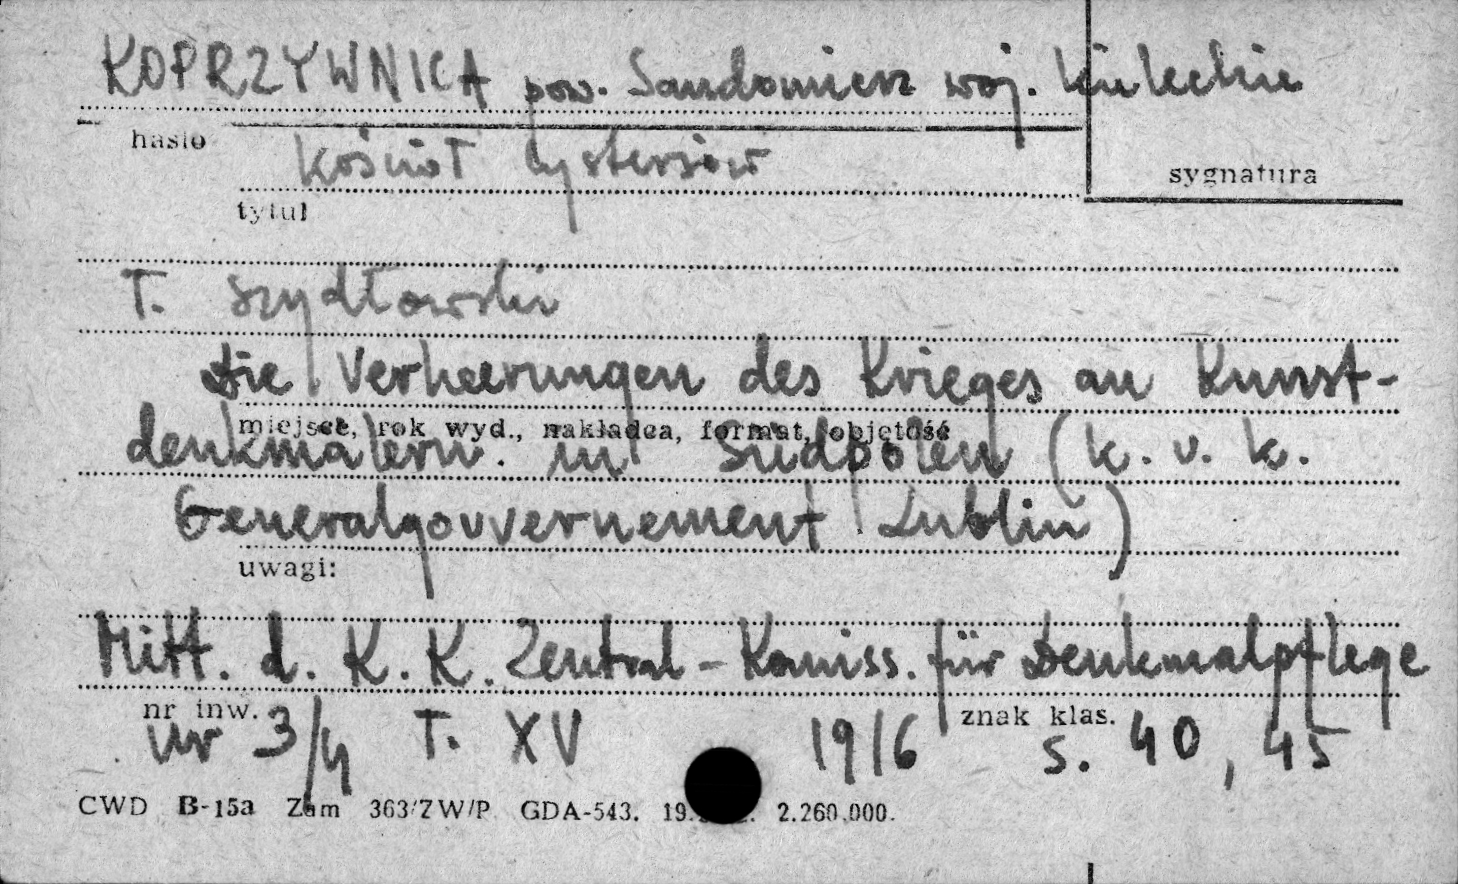 KOPRZYWNICA pow. Sandomierz woj. kieleckie
hasło
kościół Cystersów
sygnatura
tytuł
T. Szydłowski
Die Verheerungen des Krieges an Kunst-
miejsce, rok wyd., nakładca, format, objętość
denkmälern. in Südpolen (k. u. k.
Generalgouvernement Lublin)
uwagi:
Mitt. d. K. K. Zentral-Komiss. für Denkmalpflege
nr inw. znak klas.
Nr 3/4 T. XV 1916 s. 40, 45
CWD B-15a Zam 363/ZW/P GDA-543. 19. 2.260.000.